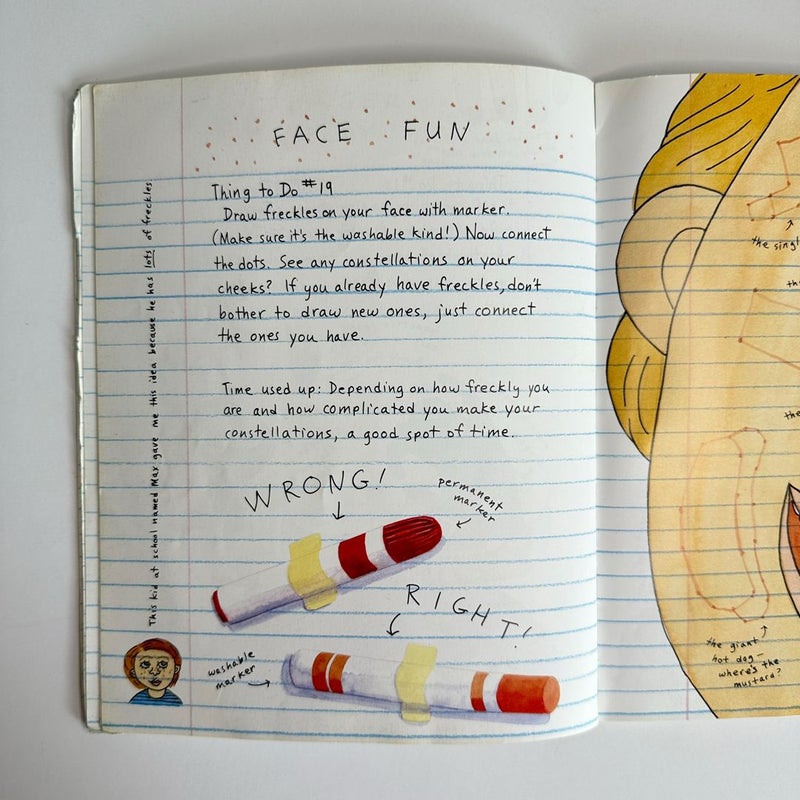 FACE FUN
Thing to Do #19
Draw freckles on your face with marker.
(Make sure it's the washable kind!) Now connect
the dots. See any constellations on your
cheeks? If you already have freckles, don't
bother to draw new ones, just connect
the ones you have.
Time used up: Depending on how freckly you
are and how complicated you make your
constellations, a good spot of time.
WRONG!
permanent
marker
RIGHT!
washable
marker
This kid at school named Max gave me this idea because he has lots of freckles.
the
the
the giant
hot dog—
where's the
mustard?